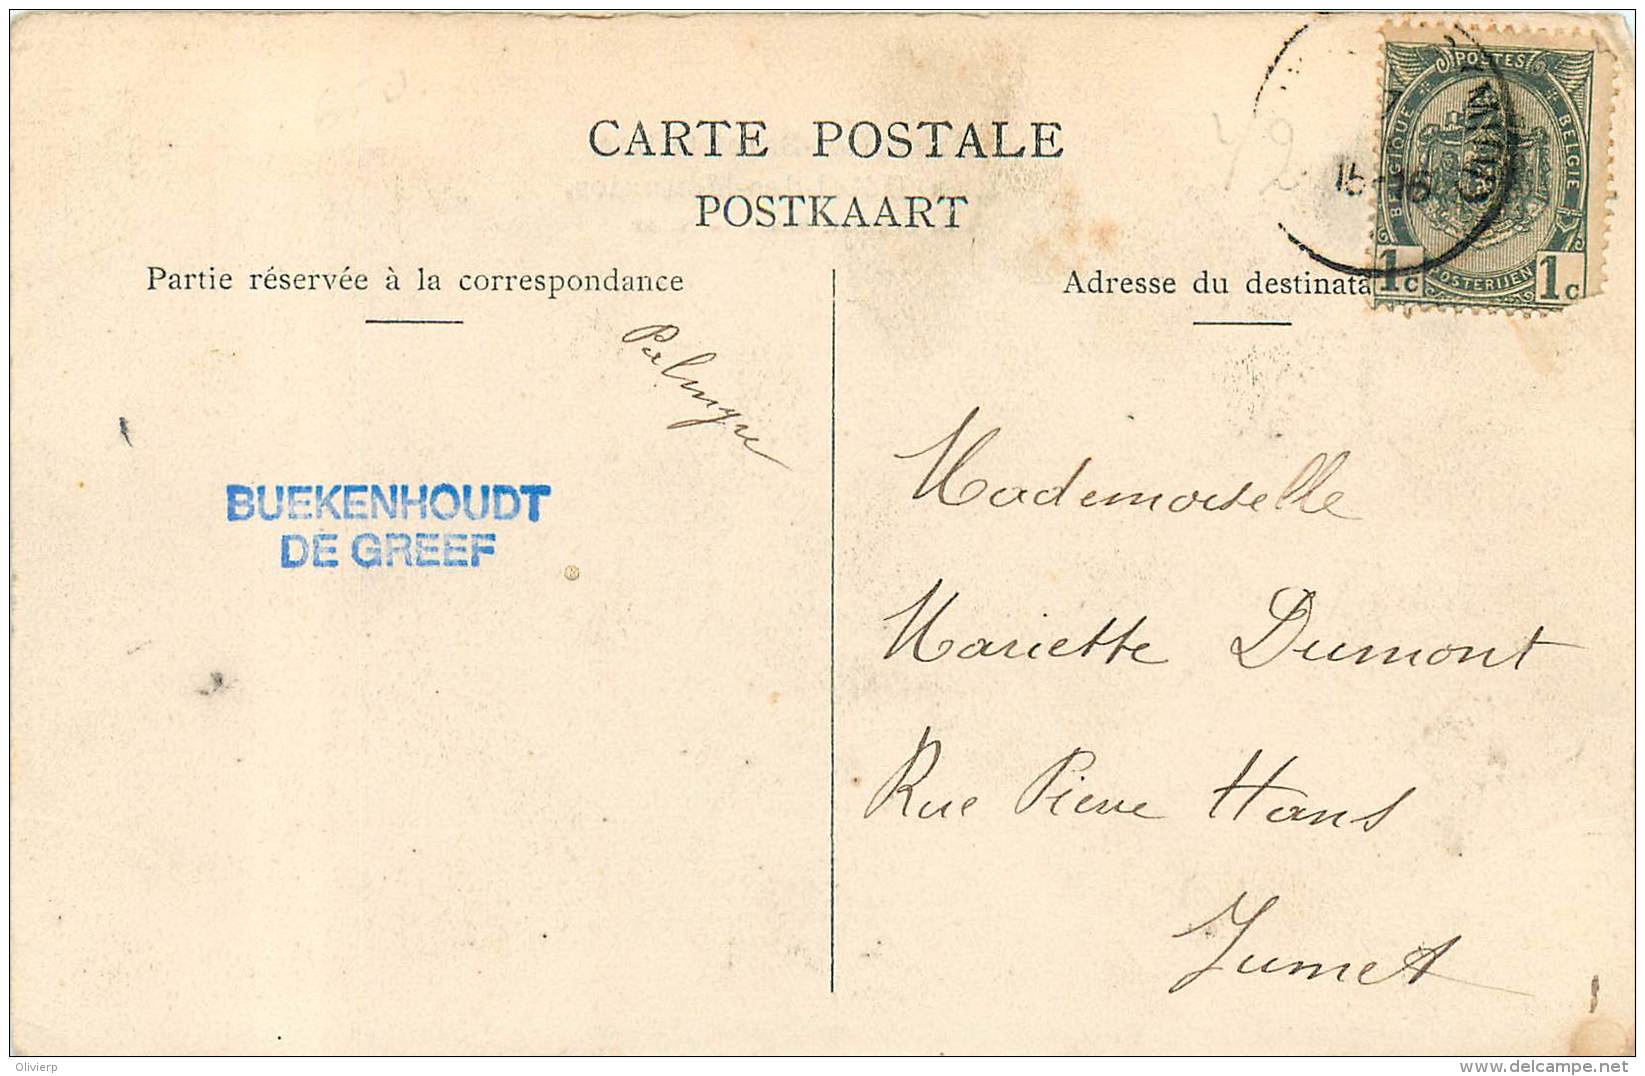 CARTE POSTALE
POSTKAART
Partie réservée à la correspondance
Adresse du destinata
POSTES
BELGIQUE
BELGIE
POSTERIJEN
1c
1c
15-16
42
Palmyre
BUEKENHOUDT
DE GREEF
Mademoiselle
Mariette Dumont
Rue Pierre Hans
Jumet
Olivierp
delcampe.net